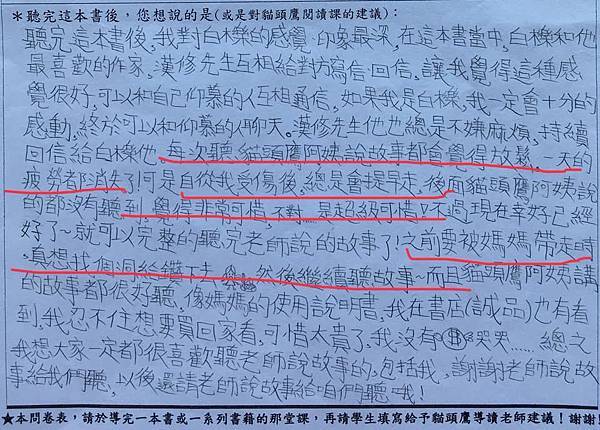 ＊聽完這本書後，您想說的是(或是對貓頭鷹閱讀課的建議)：
聽完這本書後,我對白櫟的感覺印象最深,在這本書當中,白櫟和他
最喜歡的作家,漢修先生互相給對方寫信回信,讓我覺得這種感
覺很好,可以和自己仰慕的人互相通信,如果我是白櫟,我一定會十分的
感動,終於可以和仰慕的人聊天。漢修先生他也總是不嫌麻煩,持續
回信給白櫟他,每次聽貓頭鷹阿姨說故事都會覺得放鬆,一天的
疲勞都消失了!可是自從我受傷後,總是會提早走,後面貓頭鷹阿姨說
的都沒有聽到,覺得非常可惜,不對…是超級可惜!不過,現在幸好已經
好了~就可以完整的聽完老師說的故事了!之前要被媽媽帶走時
,真想找個洞給鑽下去,然後繼續聽故事~而且貓頭鷹阿姨講
的故事都很好聽,像媽媽的使用說明書,我在書店(誠品)也有看
到,我忍不住想要買回家看,可惜太貴了,我沒有$哭哭……總之
我想大家一定都很喜歡聽老師說故事的,包括我,謝謝老師說故
事給我們聽,以後還請老師說故事給咱們聽哦!
★本問卷表，請於導完一本書或一系列書籍的那堂課，再請學生填寫給予貓頭鷹導讀老師建議！謝謝!